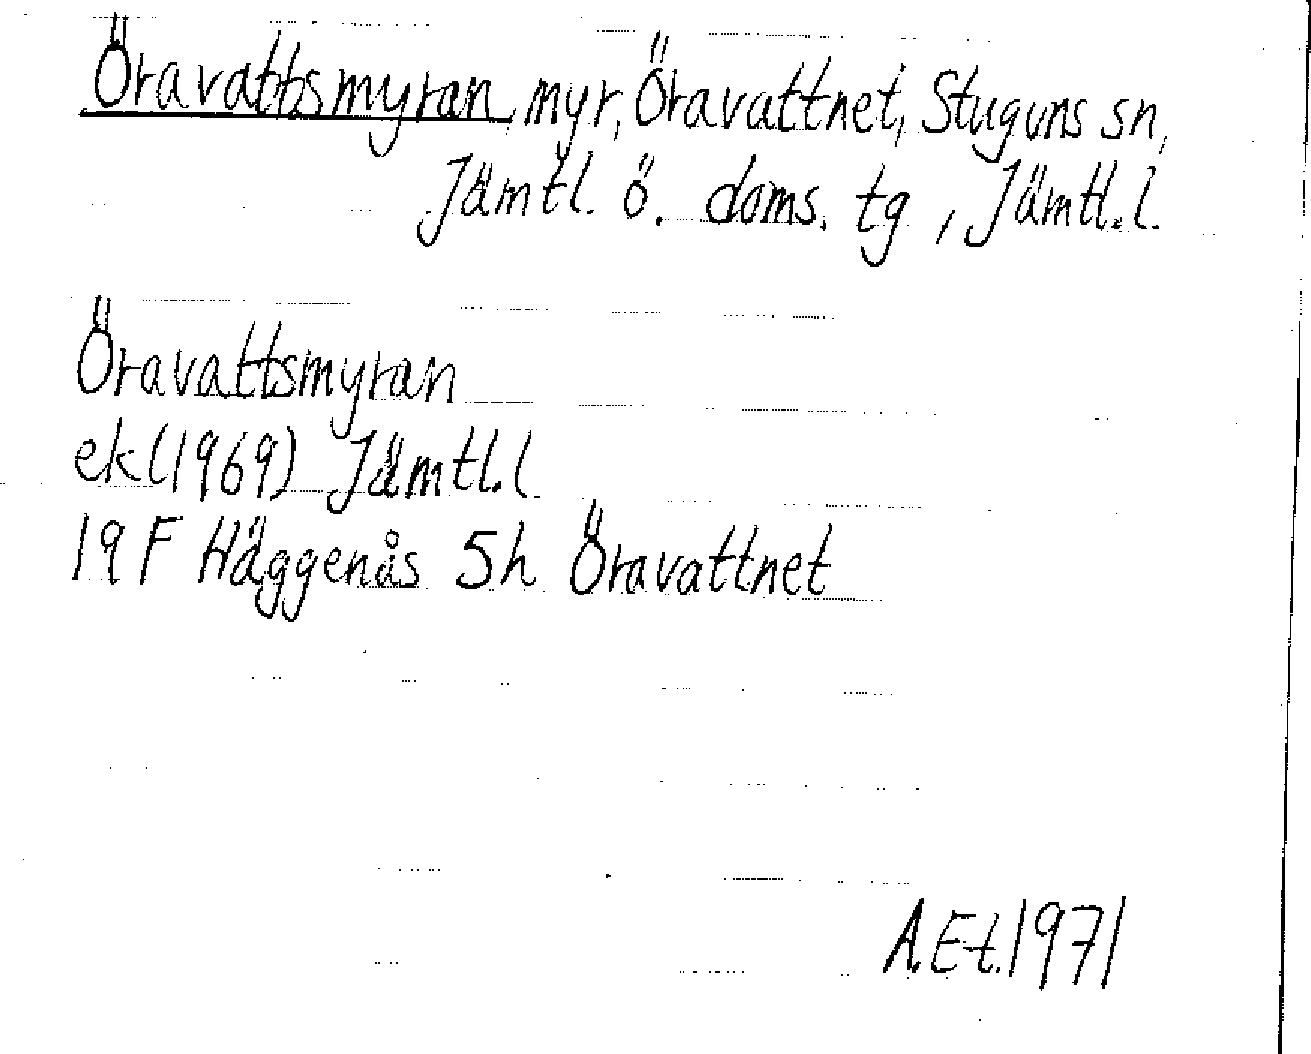 Öravattsmyran, myr, Öravattnet, Stuguns sn,
Jämtl. ö. doms. tg, Jämtl.l.
Öravattsmyran
ek(1969) Jämtl.l
19 F Häggenås 5h Öravattnet
A.Et.1971